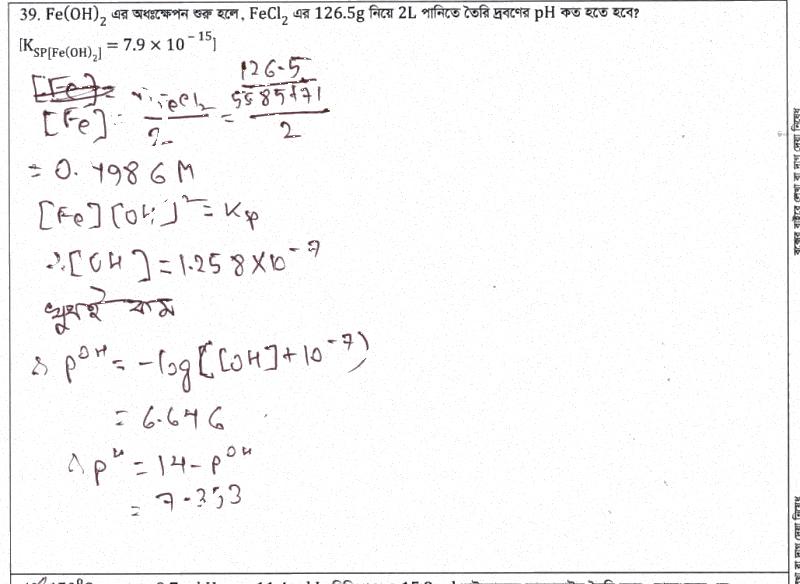 39. Fe(OH)₂ এর অধঃক্ষেপন শুরু হলে, FeCl₂ এর 126.5g নিয়ে 2L পানিতে তৈরি দ্রবণের pH কত হতে হবে?
[K_SP[Fe(OH)₂] = 7.9 × 10⁻¹⁵]
[Fe] =
[Fe] = FeCl₂ / 2 = (126.5 / 55.85+71) / 2
= 0.4986 M
[Fe][OH]² = Ksp
∴ [OH] = 1.258×10⁻⁷
খুবই কম
∴ pOH = -log([OH]+10⁻⁷)
= 6.646
∴ pH = 14-pOH
= 7.353